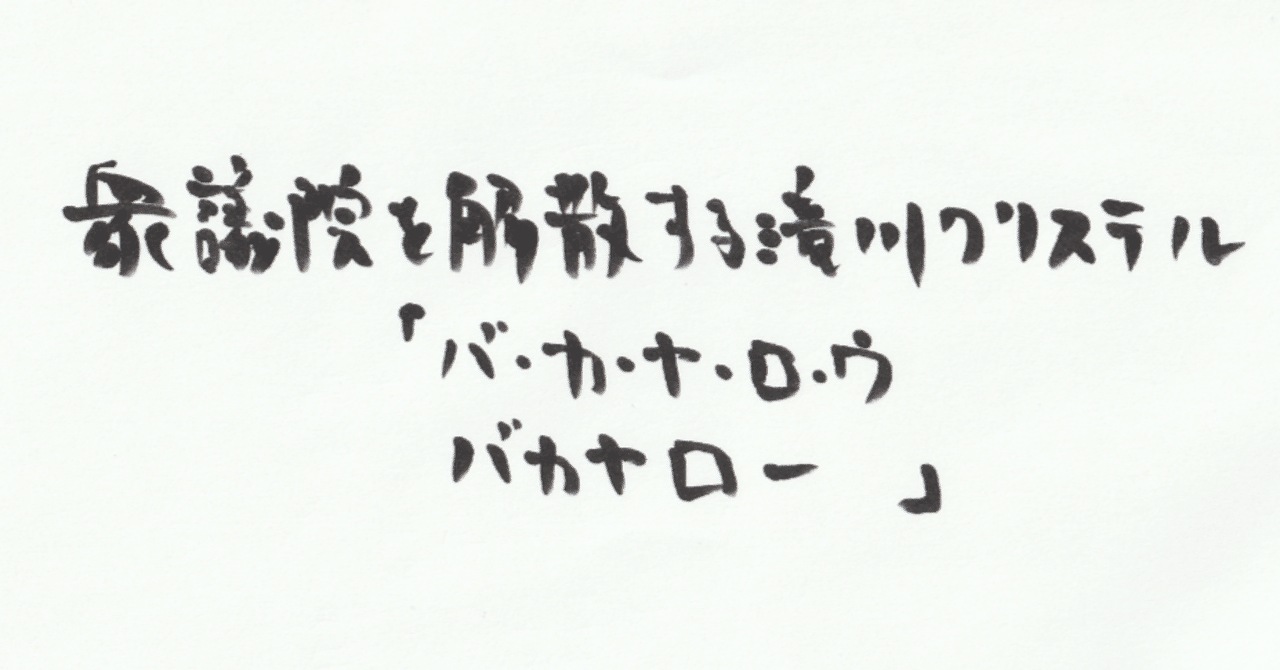 衆議院を解散する滝川クリステル
「バ・カ・ナ・ロ・ウ
バカナロー 」